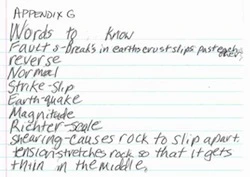 APPENDIX G
Words to know
Fault s-breaks in earth crust slips past each other
reverse
Normal
Strike-slip
Earth-quake
Magnitude
Richter-scale
shearing-causes rock to slip apart.
tension stretches rock so that it gets
thin in the middle.